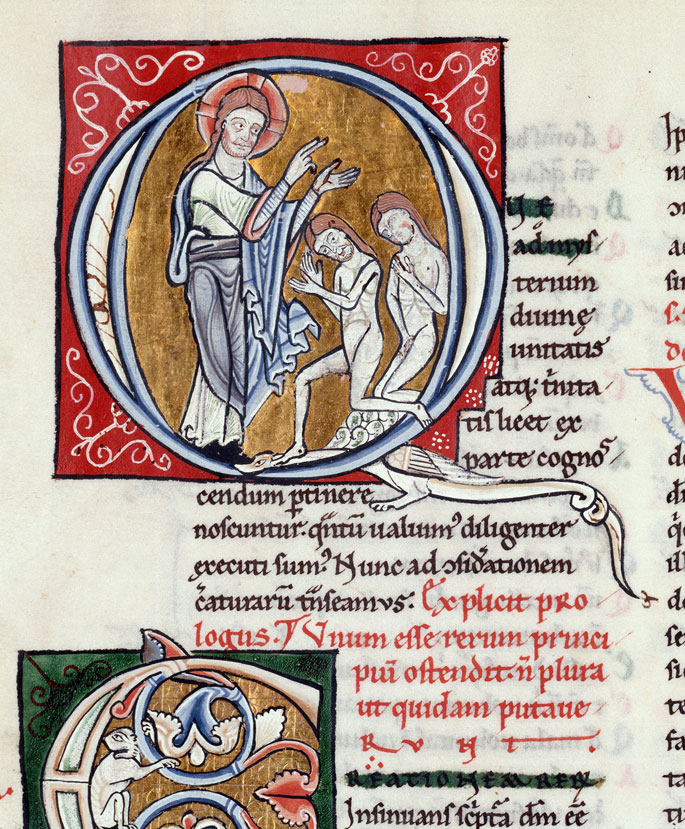 QUE
ad mys
terium
divinę
unitatis
atq; t'nita
tis licet ex
parte cognos
cendum ꝑtinere
noscuntur. q̄ntū ualuim᾽ diligenter
executi sum᾽. Nunc ad ↄsid'ationem
c'aturarū t'nseamus. Explicit pro
logus. I Unum esse rerum princi
piū ostendit. ñ plura
ut quidam putaue
RUNT.
CREATIONEM RERŪ
Insinuans sc'pt'a dm̄ eē